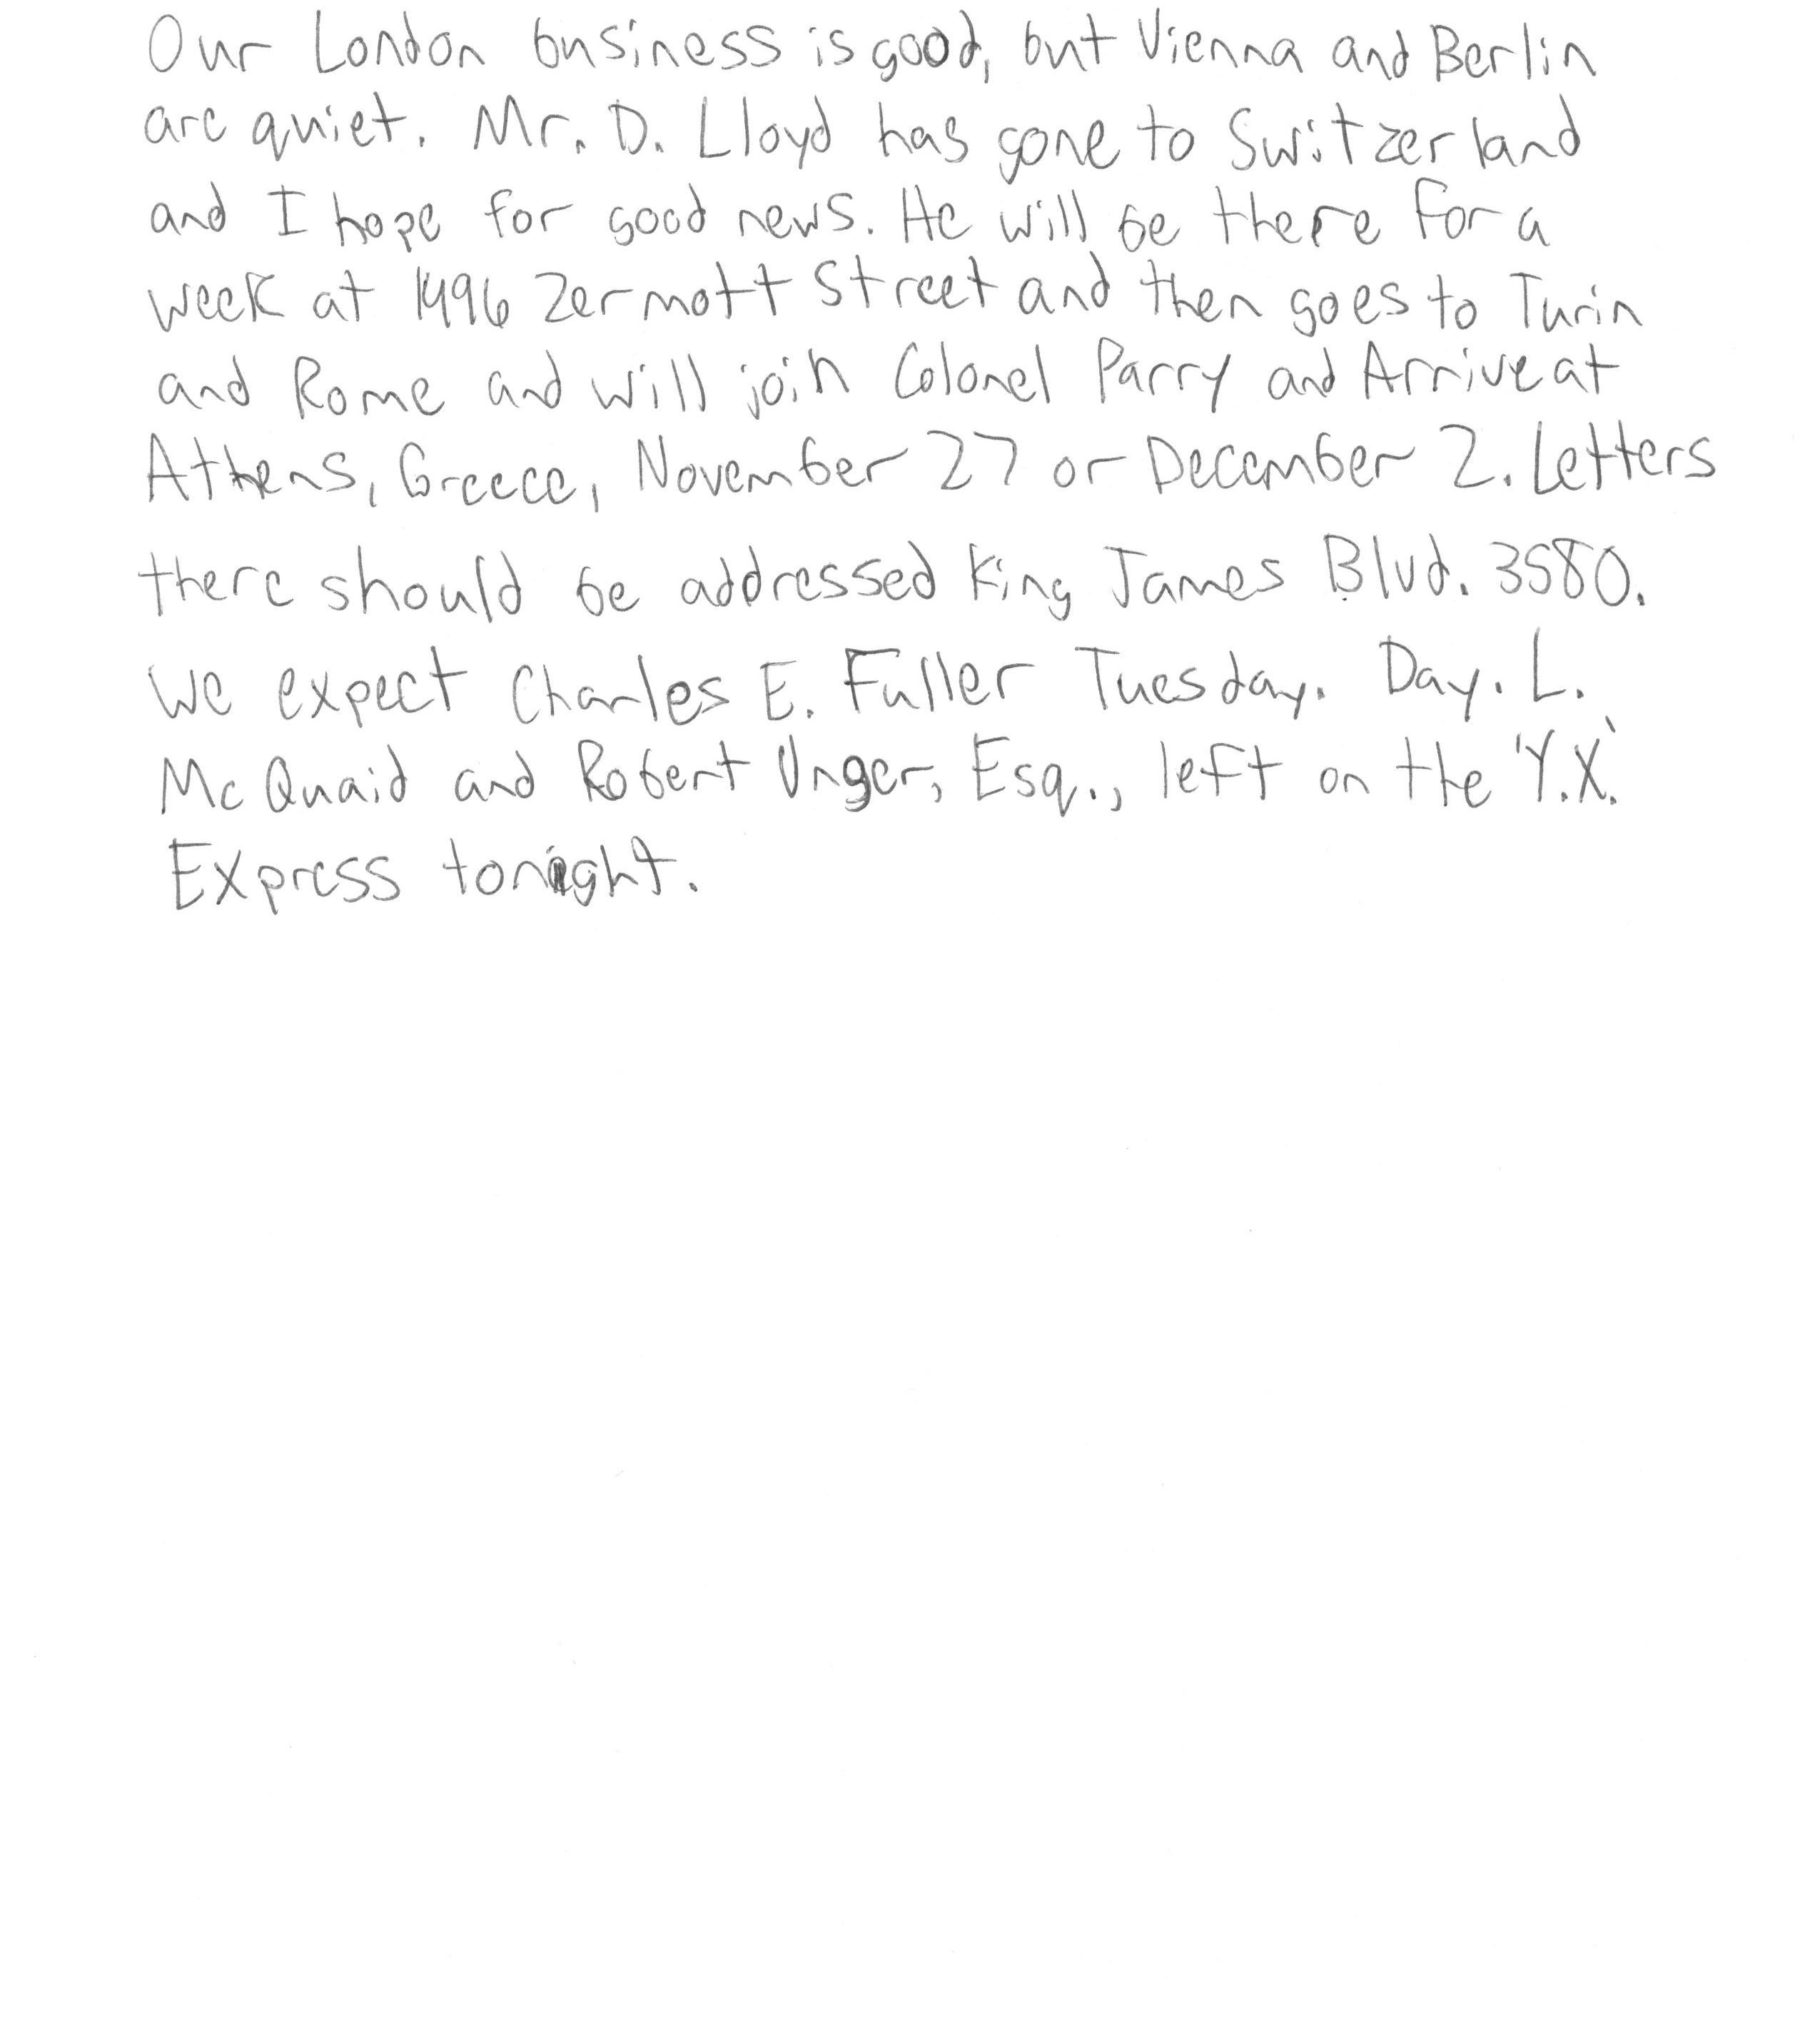 Our London business is good, but Vienna and Berlin
are quiet. Mr. D. Lloyd has gone to Switzerland
and I hope for good news. He will be there for a
week at 1496 Zermott Street and then goes to Turin
and Rome and will join Colonel Parry and Arrive at
Athens, Greece, November 27 or December 2. Letters
there should be addressed King James Blvd. 3580.
We expect Charles E. Fuller Tuesday. Day. L.
McQuaid and Robert Unger, Esq., left on the 'Y.X.'
Express tonight.